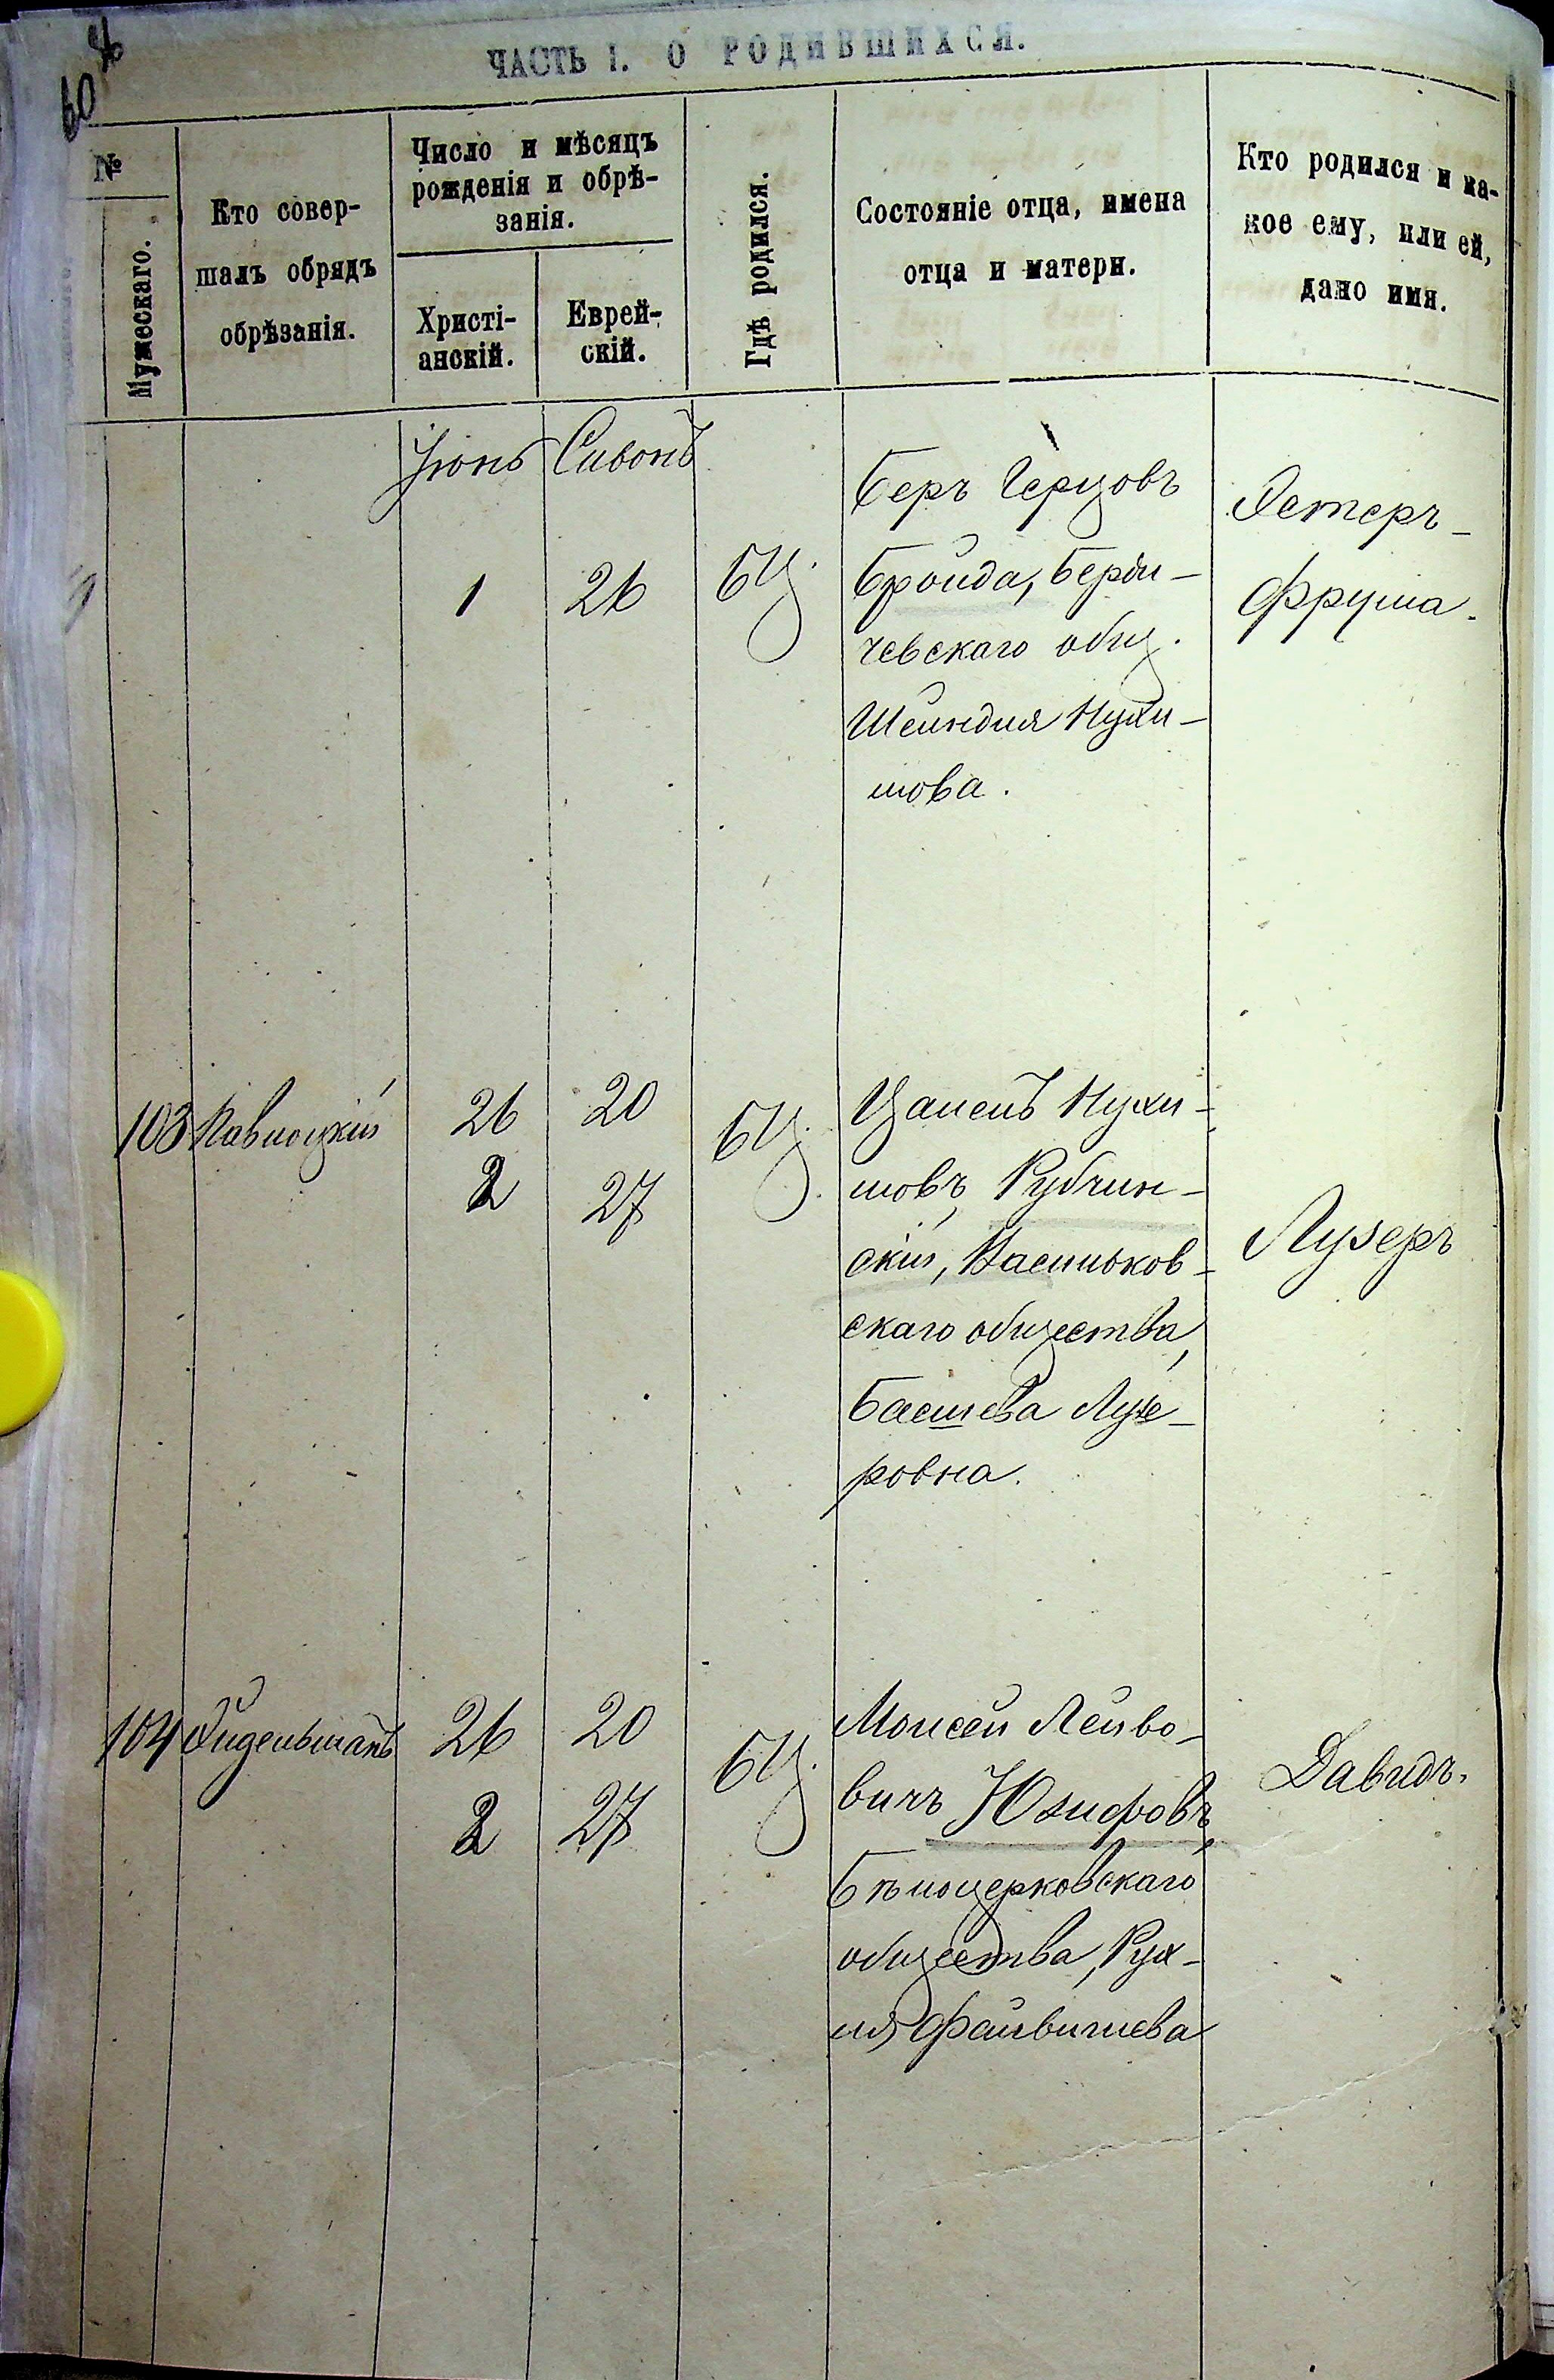 60
ЧАСТЬ I. О РОДИВШИХСЯ.
№
Мужескаго.
Кто совер-
шалъ обрядъ
обрѣзанія.
Число и мѣсяцъ
рожденія и обрѣ-
занія.
Христі-
анскій.
Еврей-
скій.
Гдѣ родился.
Состояніе отца, имена
отца и матери.
Кто родился и ка-
кое ему, или ей,
дано имя.
Іюнь Сивонъ
1 26 БЦ.
Беръ Герцовъ
Бройда, Берди-
чевскаго общ.
Шейндля Нухи-
мова.
Эстеръ-
Фрума.
103 Павлоцкій 26 20 БЦ.
2 27
Цалелъ Нухи-
мовъ Рубчин-
скій, Васильков-
скаго общества,
Басшева Лузе-
ровна.
Лузеръ
104 Эйдельманъ 26 20 БЦ.
2 27
Моисей Лейбо-
вичъ Юзифовъ,
Бѣлоцерковскаго
общества, Рух-
ля Файвишева
Давидъ.